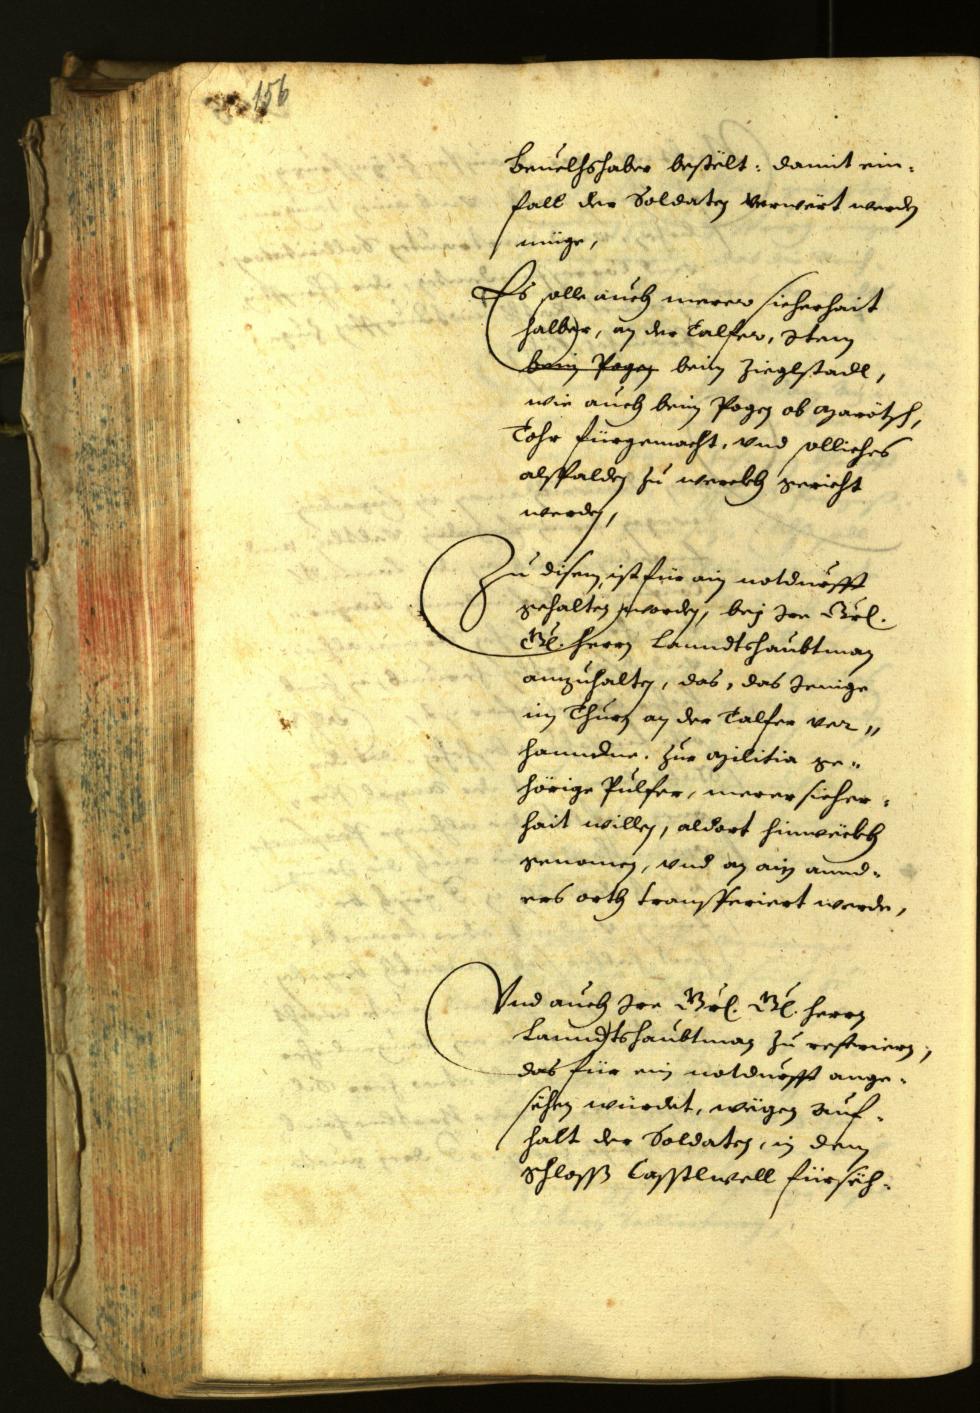 156
Beuelhshaber bestölt: damit ein-
fall der Soldaten verwört werden
müge,
Es solle auch merer sicherhait
halber, an der Talfer, Item
beim Pogen beim Zieglstadl,
wie auch beim Pogen ob Marötsch,
Tohr fürgemacht, vnd solliches
alsbalden zu werckh gericht
werden,
Zu disem, ist für ain notdurfft
gehalten worden, bej Irr
herrn Lanndtshaubtman
anzuhalten, das, das Jenige
im Thurn an der Talfer ver„
hanndne. zur Militia ge„
hörige Pulfer, merer sicher-
hait willen, aldort hinwëckh
genomen, vnd an ain annd-
ers orth transferiert werde,
Vnd auch Irr herrn
Lanndtshaubtman zu referiern,
das für ein notdurfft ange-
sëhen würdet, wëgen auf-
halt der Soldaten, in dem
schloss Casstlwell fürsëh-